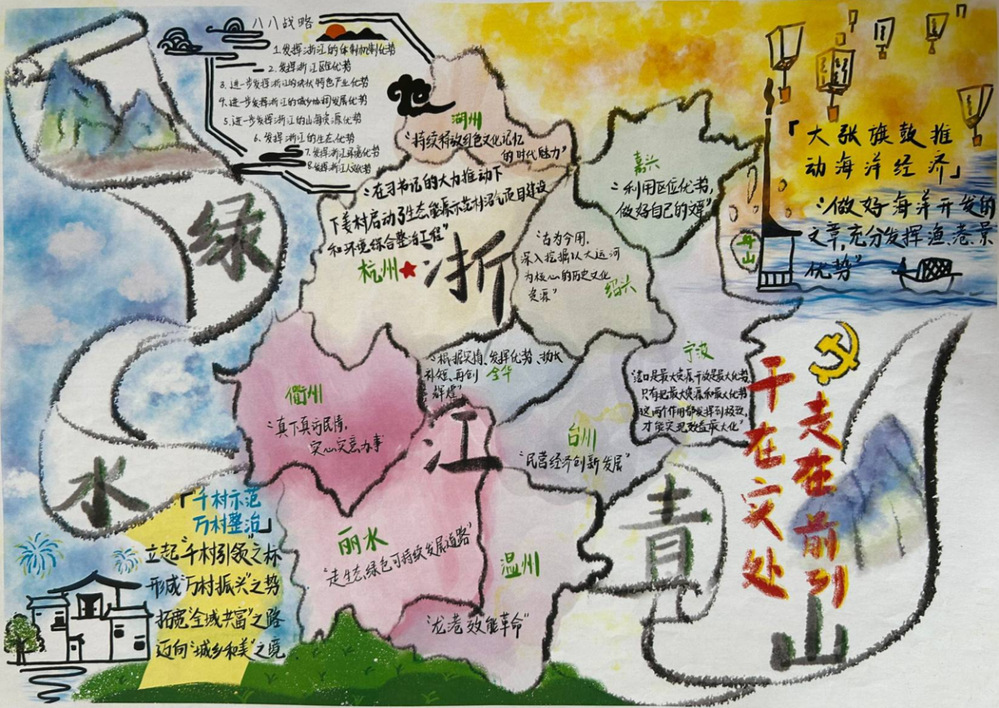 八八战略
1.发挥浙江的体制机制优势
2.发挥浙江区位优势
3.进一步发挥浙江的块状特色产业优势
4.进一步发挥浙江的城乡协调发展优势
5.进一步发挥浙江的山海资源优势
6.发挥浙江的生态优势
7.发挥浙江环境优势
8.发挥浙江人文优势
湖州
"持续释放红色文化记忆
的时代魅力"
"在习书记的大力推动下
下姜村启动了生态能源示范村沼气项目建设
和环境综合整治工程"
杭州
浙
江
嘉兴
"利用区位优势,
做好自己的
"古为今用,
深入挖掘以大运河
为核心的历史文化
资源"
绍兴
「大张旗鼓推
动海洋经济」
"做好海洋开发的
文章,充分发挥渔、港、景
优势"
舟山
宁波
"港口是最大资源,开放是最大优势
只有把最大资源和最大优势
这两个作用都发挥到极致,
才能实现效益最大化"
发挥优势、扬长
补短、再创
辉煌"
金华
衢州
"真下真访民情,
实心实意办事"
台州
"民营经济创新发展"
丽水
"走生态绿色可持续发展道路"
温州
"龙港效能革命"
绿
水
青
山
「千村示范
万村整治」
立起"千村引领"之标
形成"万村振兴"之势
拓宽"全域共富"之路
迈向"城乡和美"之境
干在实处
走在前列